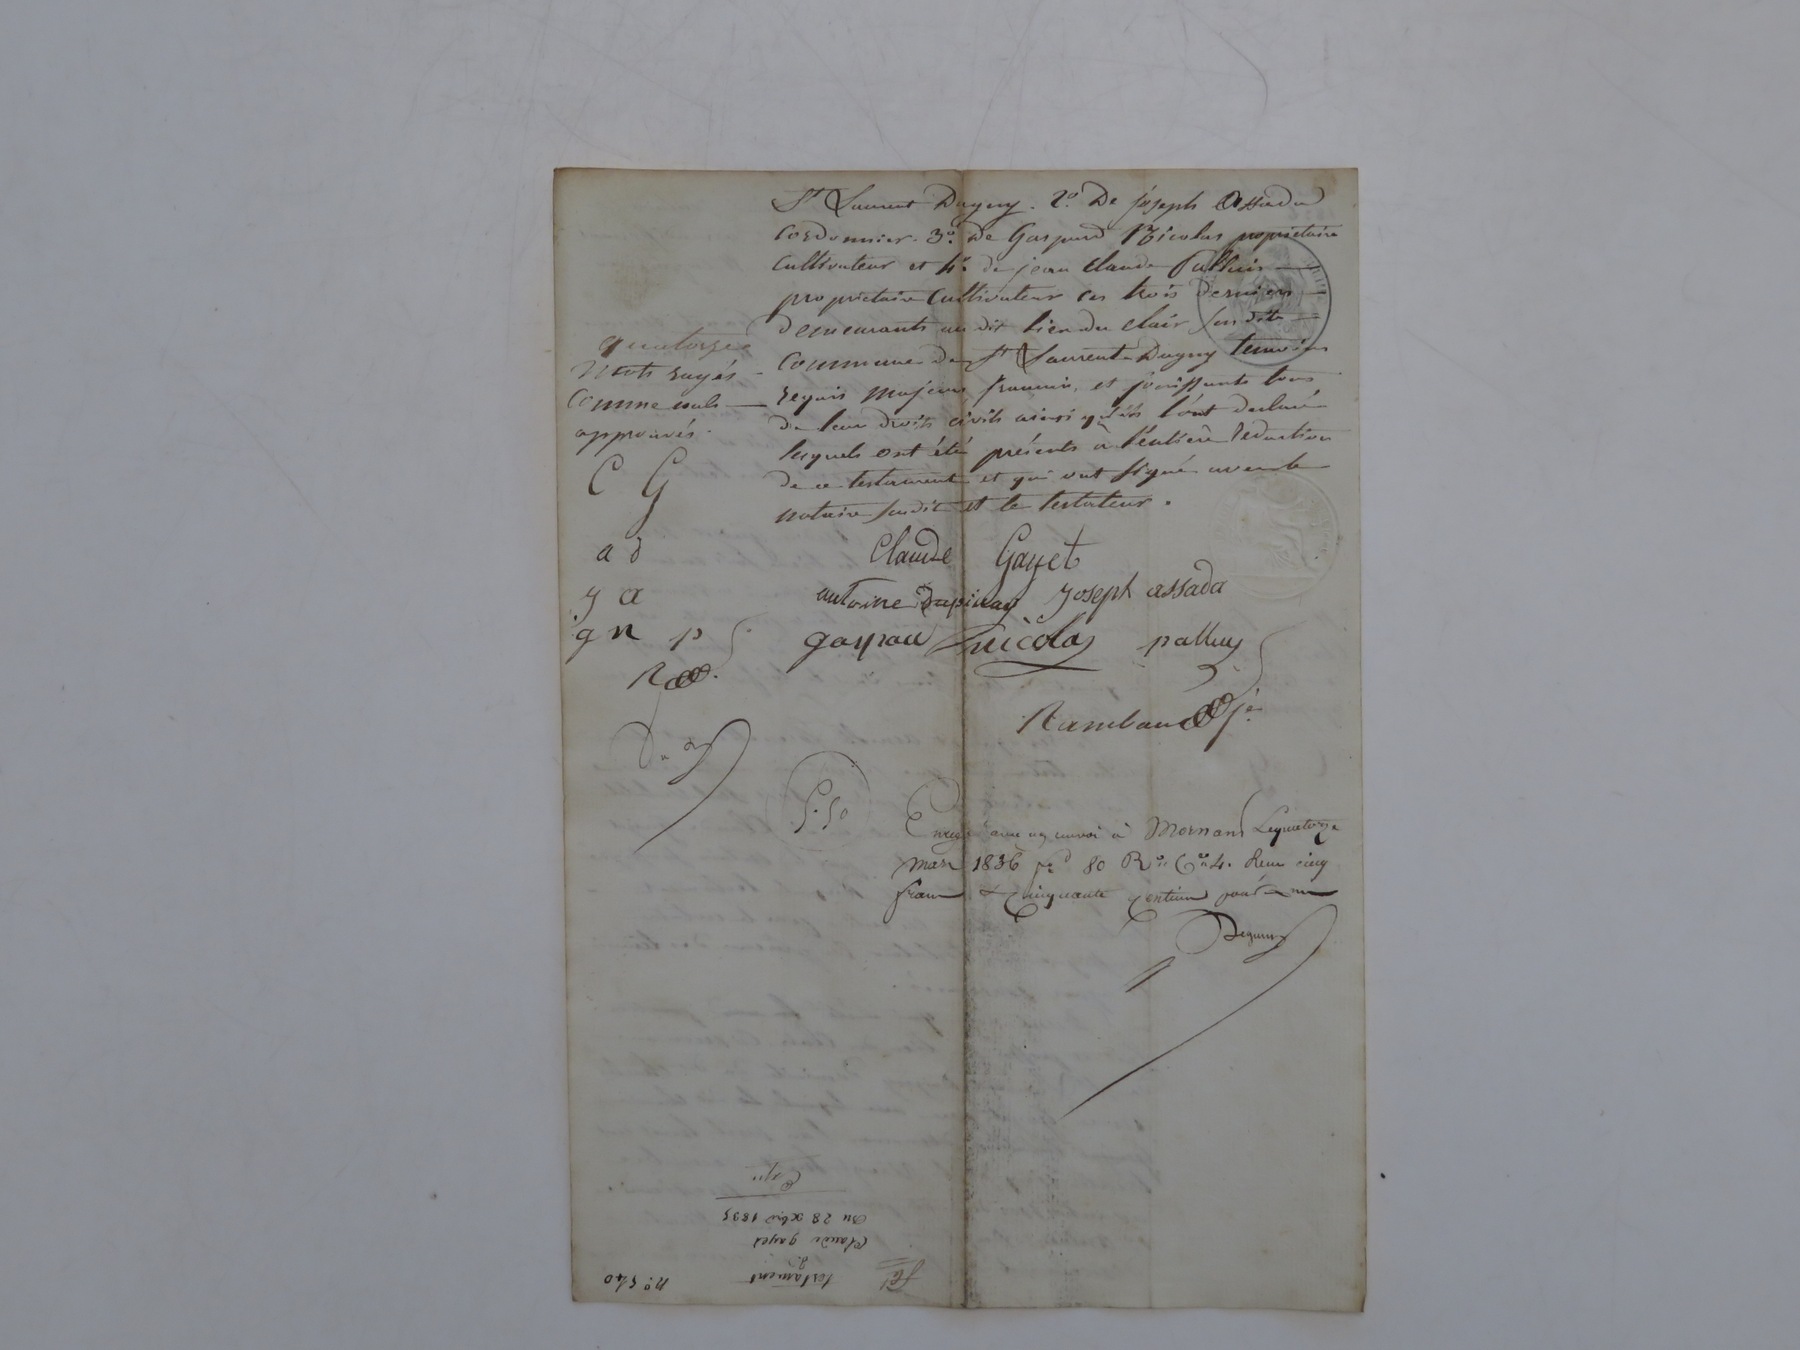 St Laurent Dagny. 2o. De joseph Assada
Cordonnier. 3o. de Gaspard Nicolas propriétaire
Cultivateur et 4o. de jean Claude Palluis
propriétaire Cultivateur ces trois derniers
demeurants au dit lieu du clair susdite
Commune de St Laurent Dagny temoins
requis majeurs francais, et jouissants tous
de leur droits civils ainsi qu'ils l'ont declaré
lesquels ont été présents à l'entière rédaction
de ce testament et qui ont signé avec le
notaire susdit et le testateur.
quatorze
Mots rayés
Comme nuls
approuvés.
C G
a d
J a
g n p
R
Claude Gayet
antoine Dupinay Joseph assada
gaspard nicolas palluy
Rambaud
5.50
Enregistré à Mornant Le quatorze
Mars 1836 fo 80 Ro Ce 4. Reçu cinq
francs & Cinquante Centimes
No. 540
testament
de
Claude gayet
Du 28 xbre 1835